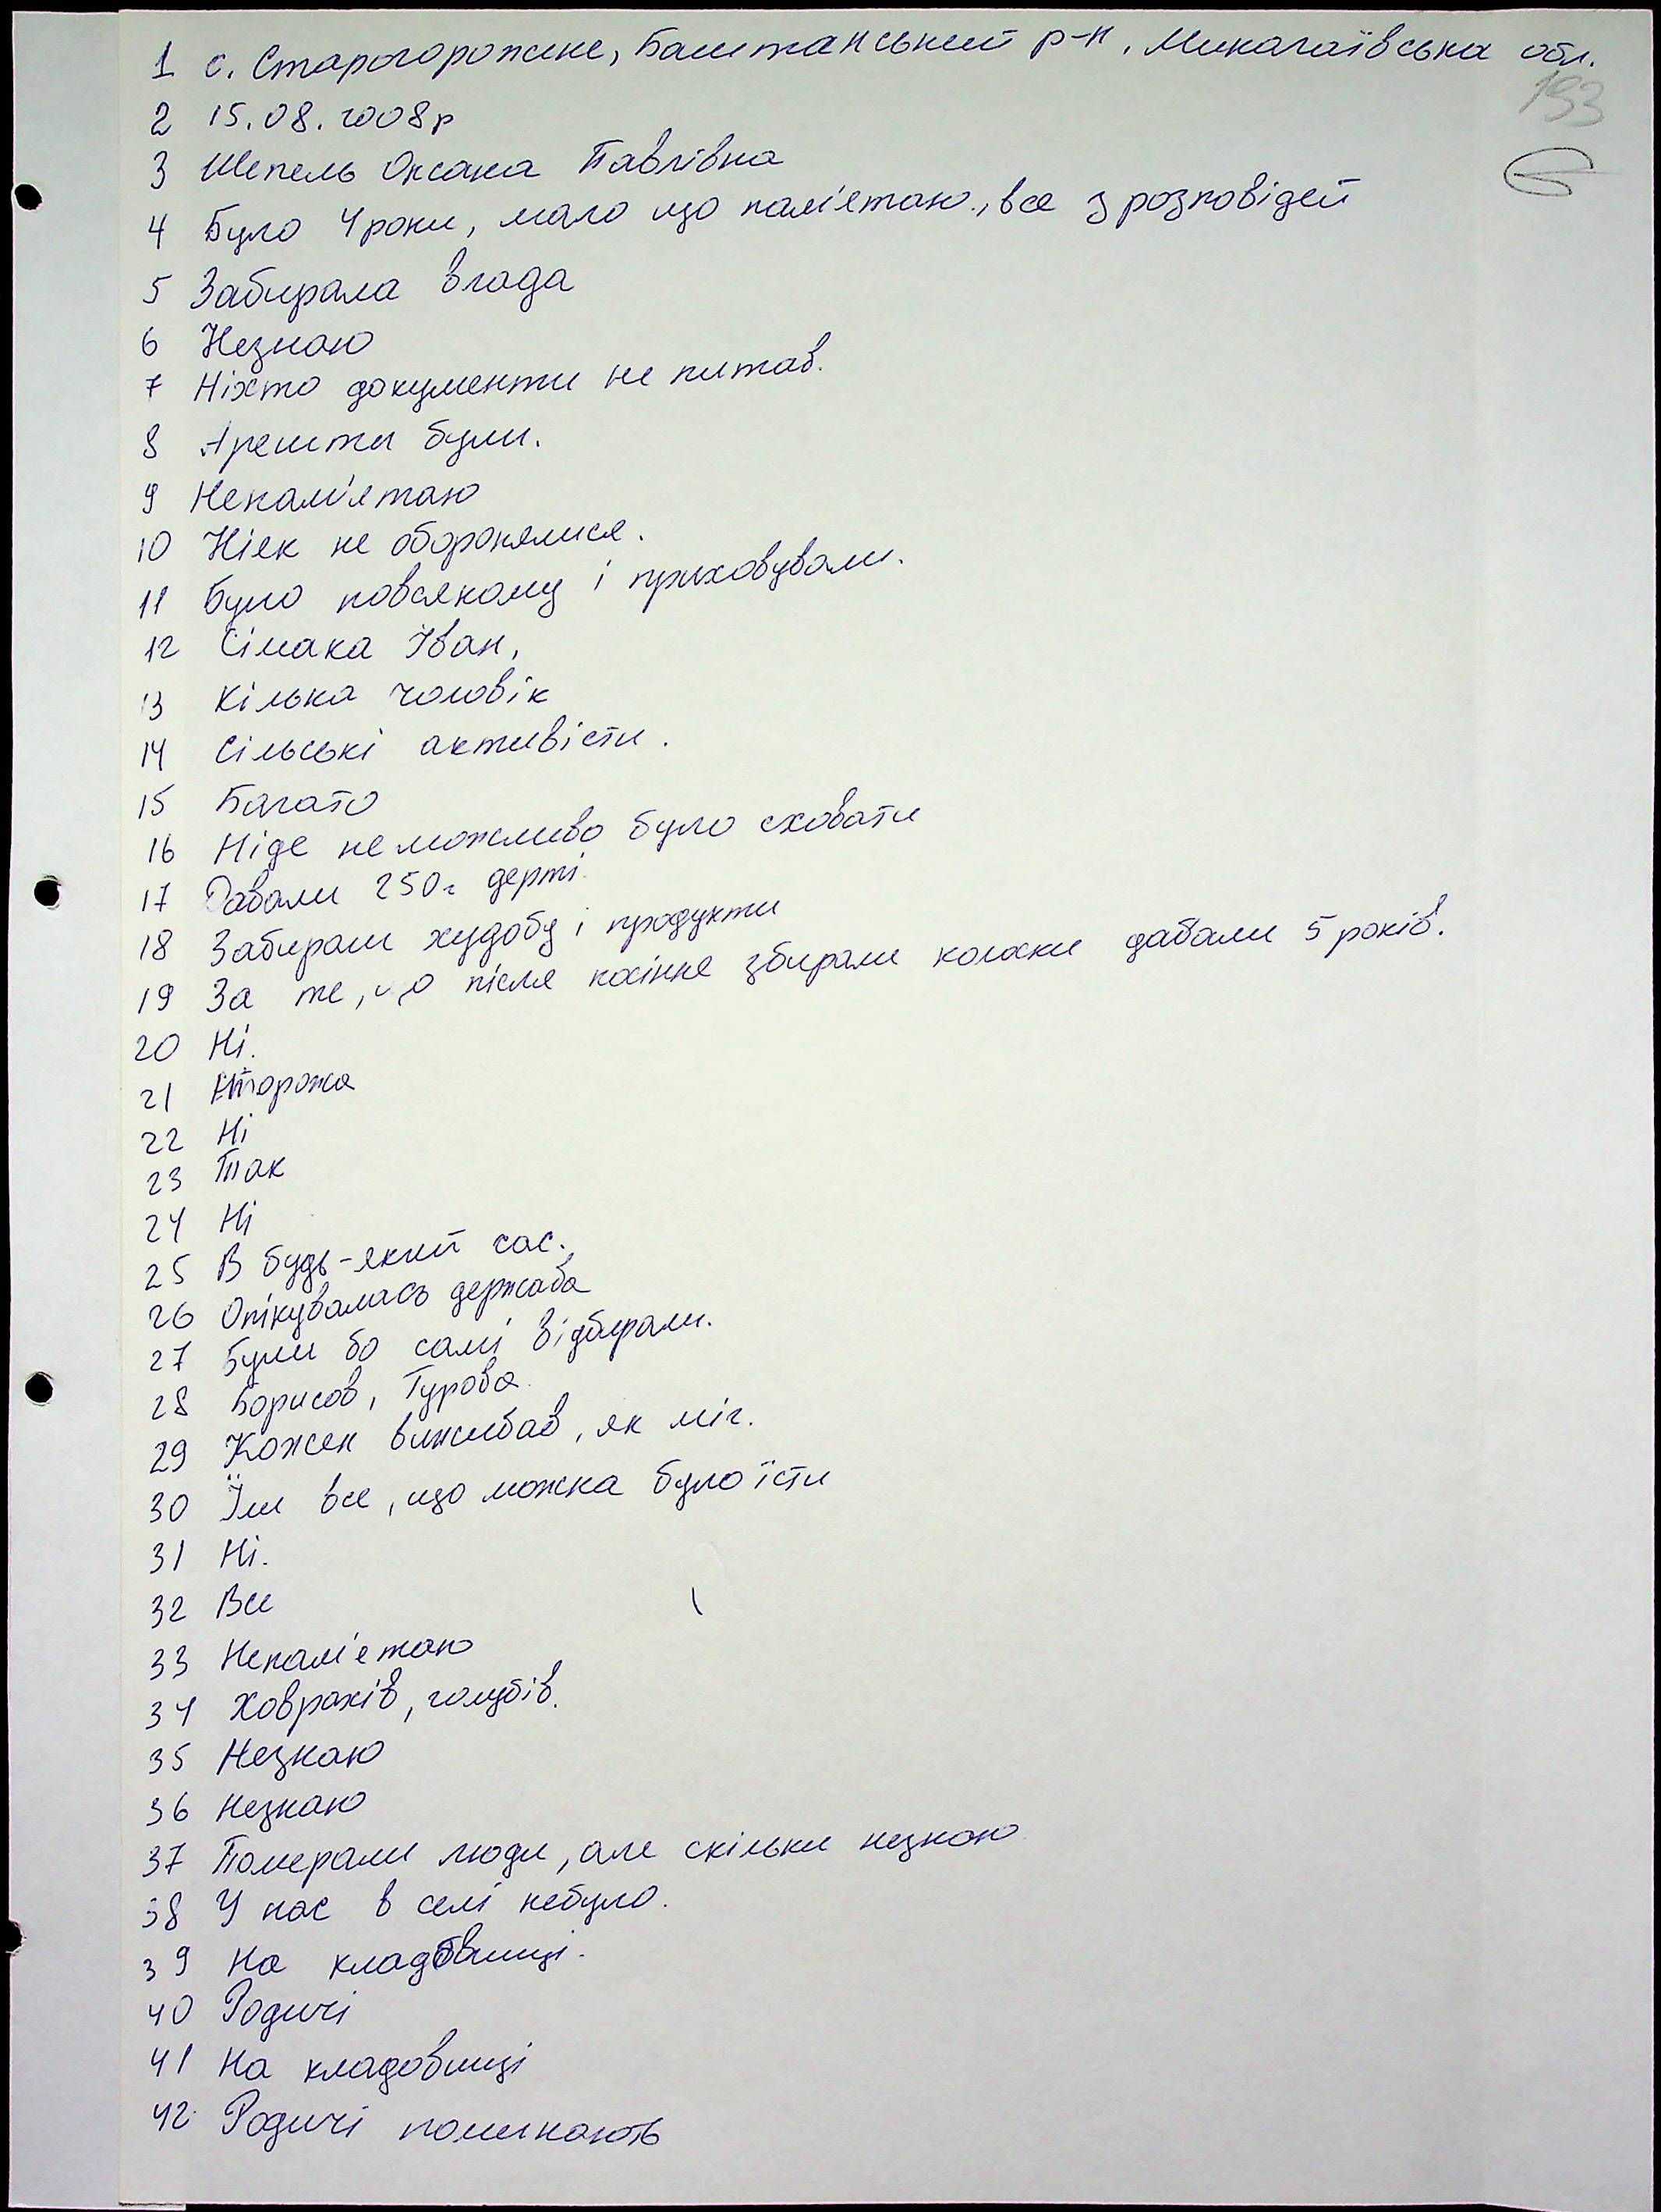 1 с. Старогорожене, Баштанський р-н, Миколаївська обл.
193
2 15.08.2008р
3 Шепель Оксана Павлівна
4 Було 4 роки, мало що пам'ятаю, все з розповідей
5 Забирала влада
6 Незнаю
7 Ніхто документи не питав.
8 Арешти були.
9 Непам'ятаю
10 Ніяк не оборонялися.
11 Було повсякому і приховували.
12 Сімака Іван,
13 Кілька чоловік
14 Сільські активісти.
15 Багато
16 Ніде неможливо було сховати
17 Давали 250г дерті.
18 Забирали худобу і продукти
19 За те, що після косіння збирали колоски давали 5 років.
20 Ні.
21 Сторожа
22 Ні
23 Так
24 Ні
25 В будь-який час.
26 Опікувалась держава
27 Були бо самі відбирали.
28 Борисов, Турова
29 Кожен виживав, як міг.
30 Їли все, що можна було їсти
31 Ні.
32 Все
33 Непам'ятаю
34 Ховрахів, голубів.
35 Незнаю
36 Незнаю
37 Помирали люди, але скільки незнаю
38 У нас в селі небуло.
39 На кладовищі.
40 Родичі
41 На кладовищі
42 Родичі поминають